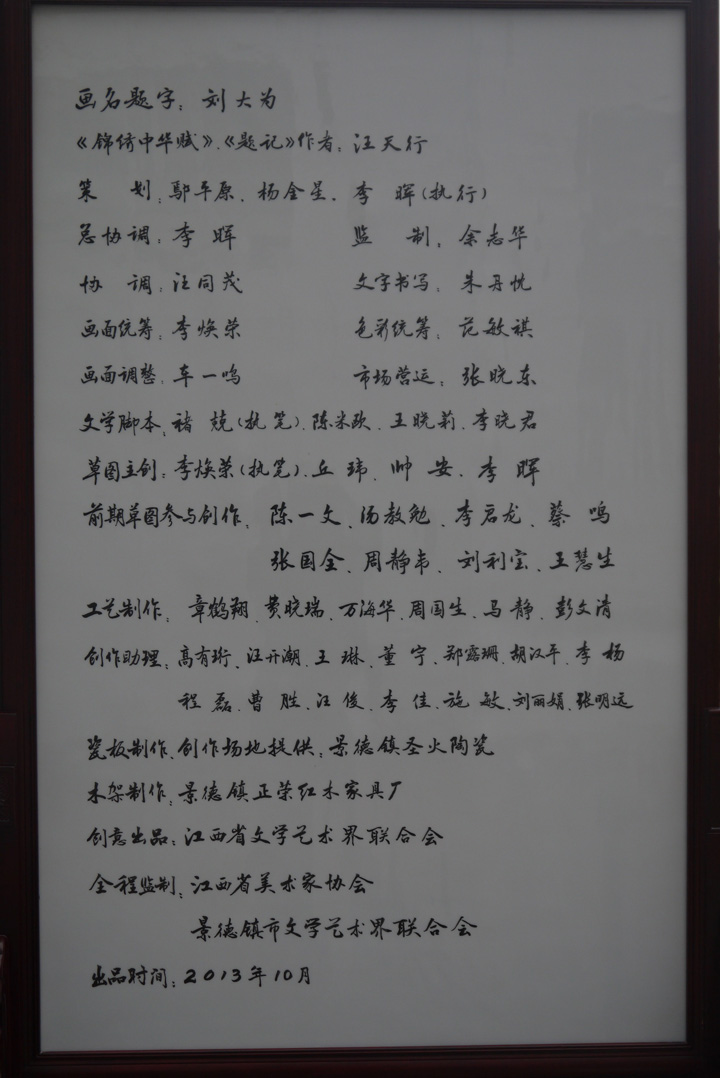 画名题字：刘大为
《锦绣中华赋》、《题记》作者：汪天行
策　划：鄢平原、杨金星、李　晖（执行）
总协调：李　晖　　监　制：余志华
协　调：汪同茂　　文字书写：朱丹忱
画面统筹：李焕荣　　色彩统筹：范敏祺
画面调整：车一鸣　　市场营运：张晓东
文学脚本：褚　兢（执笔）、陈米欧、王晓莉、李晓君
草图主创：李焕荣（执笔）、丘　玮、帅　安、李　晖
前期草图参与创作：陈一文、汤敖勉、李启龙、蔡　鸣
张国全、周静韦、刘利宝、王慧生
工艺制作：章鹤翔、贵晓瑞、万海华、周国生、马　静、彭文清
创作助理：高有珩、汪开潮、王　琳、董　宁、郑露珊、胡汉平、李　杨
程　磊、曹　胜、汪　俊、李　佳、施　敏、刘丽娟、张明远
瓷板制作、创作场地提供：景德镇圣火陶瓷
木架制作：景德镇正荣红木家具厂
创意出品：江西省文学艺术界联合会
全程监制：江西省美术家协会
景德镇市文学艺术界联合会
出品时间：2013年10月